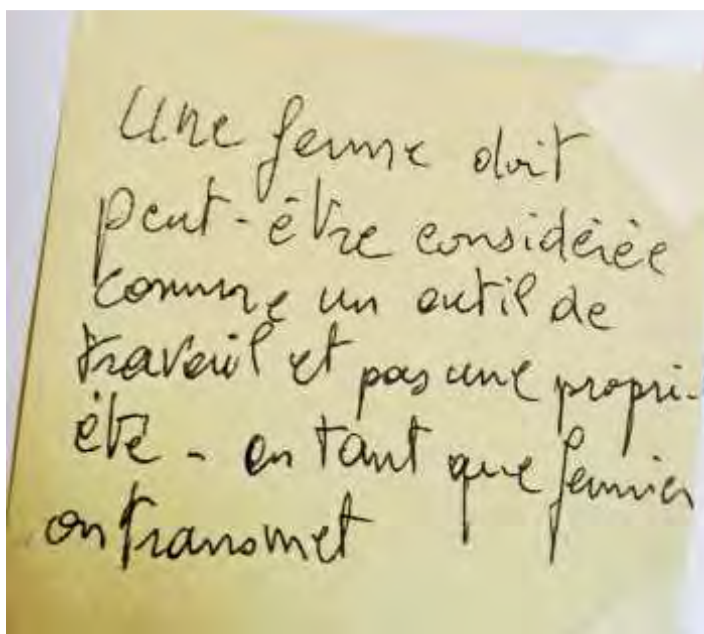 Une ferme doit
peut-être considérée
comme un outil de
travail et pas une propri-
été - en tant que fermier
on transmet